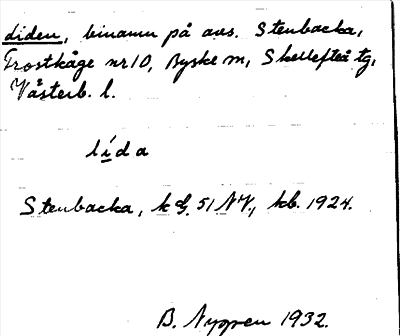 diden, binamn på avs. Stenbacka,
Frostkåge nr 10, Byske sn, Skellefteå tg,
Västerb. l.
lída
Stenbacka, 51 NV., kb. 1924.
B. Nygren 1932.